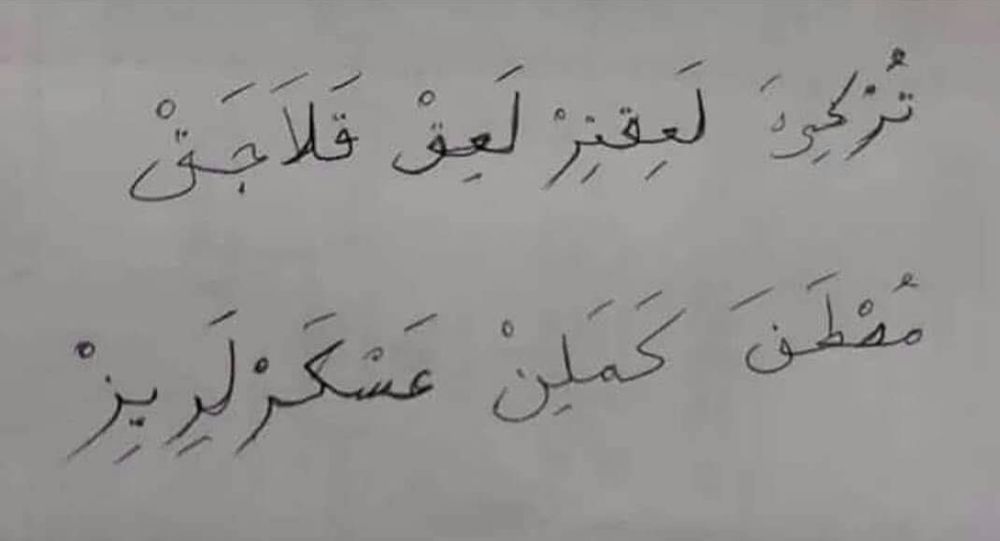 تُرْكِيَ لَعِقتِرْ لَعِقْ قَلَاجَقْ
مُصْطَفَ كَمَلِنْ عَسْكَرْلَرِيِزْ